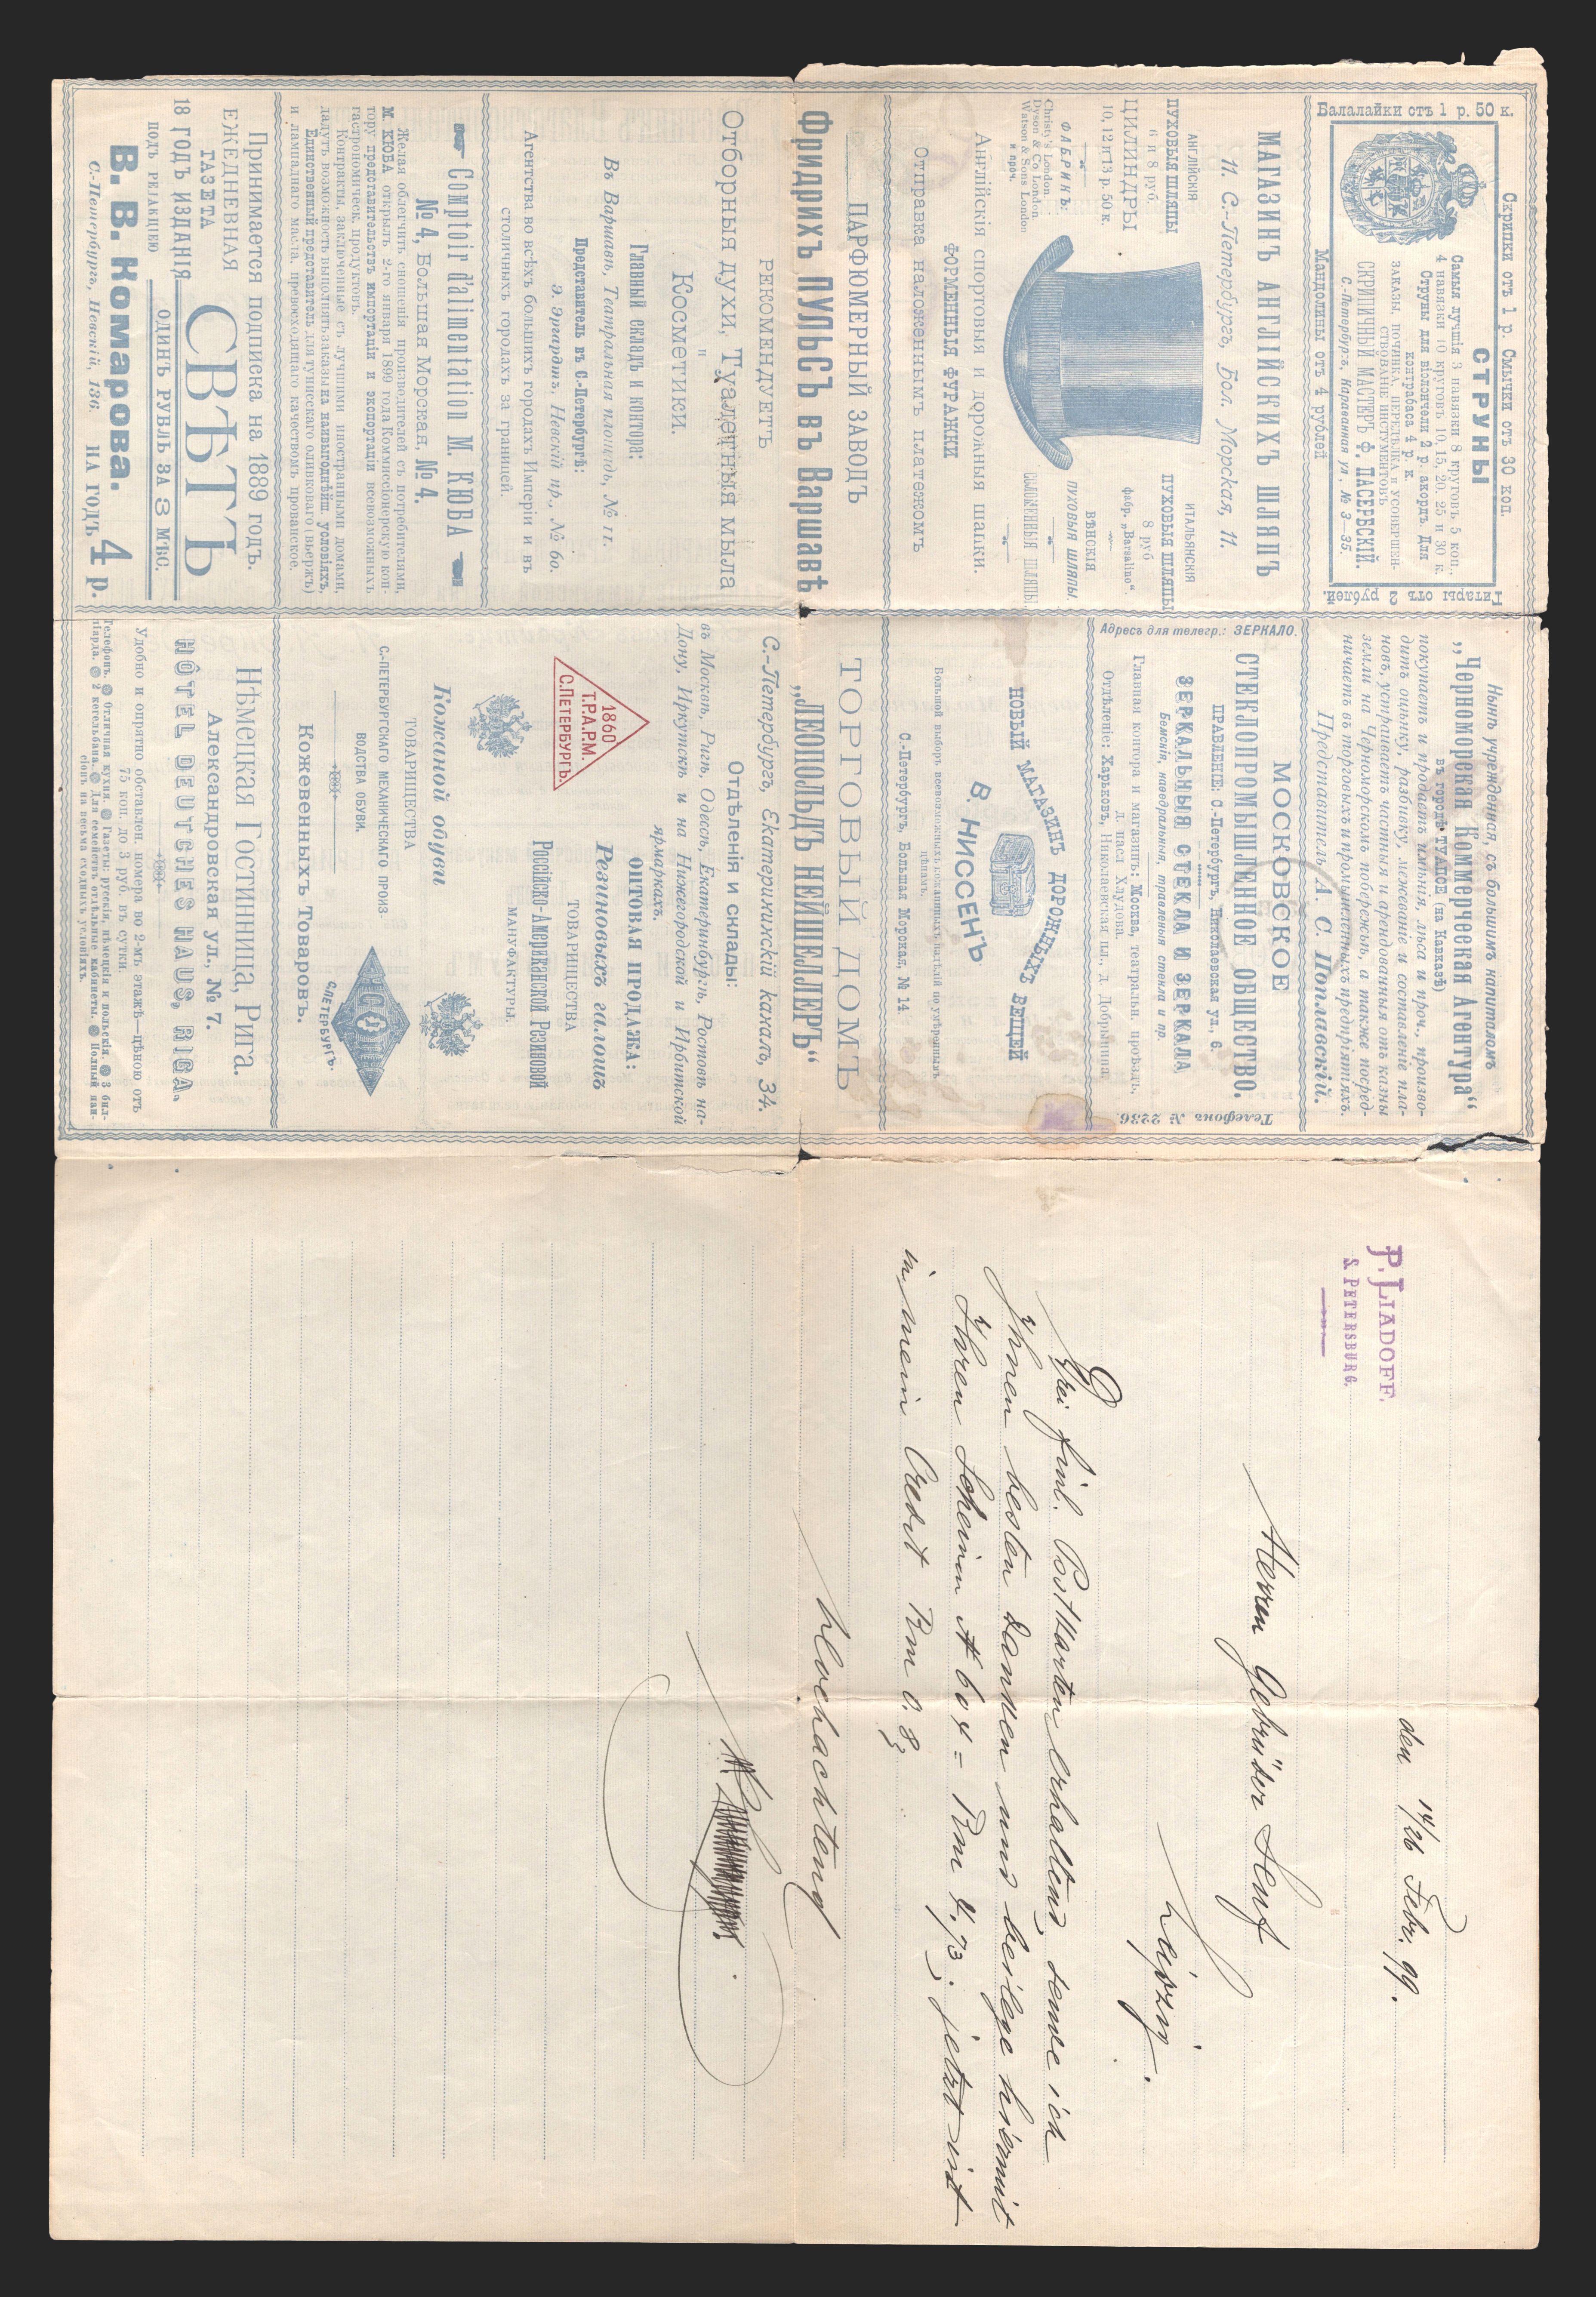 Балалайки отъ 1 р. 50 к.
Скрипки отъ 1 р. Смычки отъ 30 коп.
СТРУНЫ
Самыя лучшія 3 навязки 8 круговъ 5 коп.,
4 навязки 10 круговъ 10, 15, 20, 25 и 30 к.
Струны для віолончели 2 р. акордъ. Для
контрабаса 4 р. к.
ЗАКАЗЫ, ПОЧИНКА, ПЕРЕДѢЛКА и УСОВЕРШЕН-
СТВОВАНІЕ ИНСТУМЕНТОВЪ
СКРИПИЧНЫЙ МАСТЕРЪ Ф. ПАСЕРБСКІЙ.
С.-Петербургъ, Караванная ул., № 3—35.
Мандолины отъ 4 рублей
Гитары отъ 2 рублей.
МАГАЗИНЪ АНГЛІЙСКИХЪ ШЛЯПЪ
11. С.-Петербургъ, Бол. Морская, 11.
АНГЛІЙСКІЯ
ПУХОВЫЯ ШЛЯПЫ
6 и 8 руб.
ЦИЛИНДРЫ
10, 12 и 13 р. 50 к.
ФАБРИКЪ:
Christy's London
Dyson & Co London
Watson & Sons London
и проч.
ИТАЛЬЯНСКІЯ
ПУХОВЫЯ ШЛЯПЫ
8 руб
фабр. „Barsalino“.
ВѢНСКІЯ
ПУХОВЫЯ ШЛЯПЫ.
ШЛЯПЫ
Англійскія спортовыя и дорожныя шапки.
ФОРМЕННЫЯ ФУРАЖКИ
Отправка наложеннымъ платежомъ
ПАРФЮМЕРНЫЙ ЗАВОДЪ
ФРИДРИХЪ ПУЛЬСЪ въ Варшавѣ
РЕКОМЕНДУЕТЪ
Отборныя духи, Туалетныя мыла
и
Косметики.
Главный складъ и контора:
Въ Варшавѣ, Театральная площадь, № 11.
Представитель въ С.-Петербургѣ:
Э. Эргардтъ, Невскій пр., № 60.
Агентства во всѣхъ большихъ городахъ Имперіи и въ
столичныхъ городахъ за границей.
Comptoir d'alimentation М. КЮБА
№ 4, Большая Морская, № 4.
Желая облегчить сношенія производителей съ потребителями,
М. КЮБА открылъ 2-го января 1899 года Коммиссіонерскую кон-
тору представительствъ импортаціи и экспортаціи всевозможныхъ
гастрономическ. продуктовъ.
Контракты, заключенные съ лучшими иностранными домами,
дадутъ возможность выполнять заказы на наивыгоднѣйш. условіяхъ.
Единственный представитель для тунисскаго оливковаго вьержъ)
и лампаднаго масла, превосходящаго качествомъ прованское.
Принимается подписка на 1889 годъ.
ЕЖЕДНЕВНАЯ
ГАЗЕТА
СВѢТЪ
18 ГОДЪ ИЗДАНІЯ
ОДИНЪ РУБЛЬ ЗА 3 МѢС.
ПОДЪ РЕДАКЦІЕЮ
В. В. Комарова.
НА ГОДЪ 4 р.
С.-Петербургъ, Невскій, 136.
Нынѣ учрежденная, съ большимъ капиталомъ
„Черноморская Коммерческая Агентура“
въ городѣ ТУАПСЕ (на Кавказѣ)
покупаетъ и продаетъ имѣнья, лѣса и проч., произво-
дитъ оцѣнку, разбивку, межеваніе и составленіе пла-
новъ, устраиваетъ частныя и арендованныя отъ казны
земли на Черноморскомъ побережьѣ, а также посред-
ничаетъ въ торговыхъ и промышленныхъ предпріятіяхъ.
Представитель А. С. Поплавскій.
Адресъ для телегр.: ЗЕРКАЛО.
МОСКОВСКОЕ
СТЕКЛОПРОМЫШЛЕННОЕ ОБЩЕСТВО.
ПРАВЛЕНІЕ: С.-Петербургъ, Николаевская ул., 6.
ЗЕРКАЛЬНЫЯ СТЕКЛА И ЗЕРКАЛА
Бемскія, навѣдральныя, травленыя стекла и пр.
Главная контора и магазинъ: Москва, театральн. проѣздъ,
д. насл. Хлудова.
Отдѣленіе: Харьковъ, Николаевская пл., д. Добрынина.
Телефонъ № 2236.
НОВЫЙ МАГАЗИНЪ ДОРОЖНЫХЪ ВЕЩЕЙ
В. НИССЕНЪ
Большой выборъ всевозможныхъ кожанныхъ издѣлій по умѣреннымъ
цѣнамъ.
С.-Петербургъ, Большая Морская, № 14
ТОРГОВЫЙ ДОМЪ
„ЛЕОПОЛЬДЪ НЕЙШЕЛЛЕРЪ“
С.-Петербургъ, Екатерининскій каналъ, 34.
Отдѣленія и склады:
въ Москвѣ, Ригѣ, Одессѣ, Екатеринбургѣ, Ростовѣ на-
Дону, Иркутскѣ и на Нижегородской и Ирбитской
ярмаркахъ.
ОПТОВАЯ ПРОДАЖА:
Резиновыхъ галошъ
ТОВАРИЩЕСТВА
Россійско-Американской Резиновой
МАНУФАКТУРЫ.
1860
Т.Р.А.Р.М.
С.ПЕТЕРБУРГЪ.
Кожаной обуви
ТОВАРИЩЕСТВА
С.-ПЕТЕРБУРГСКАГО МЕХАНИЧЕСКАГО ПРОИЗ-
ВОДСТВА ОБУВИ.
С.ПЕТЕРБУРГЪ
Кожевенныхъ Товаровъ.
Нѣмецкая Гостинница, Рига.
Александровская ул., № 7.
HÔTEL DEUTCHES HAUS, RIGA.
Удобно и опрятно обставлен. номера во 2-мъ этажѣ—цѣною отъ
75 коп. до 3 руб. въ сутки.
Телефонъ. Отличная кухня. Газеты: рускія, нѣмецкія и польскія. 3 бил-
ліарда. 2 кегельбана. Для семействъ отдѣльные кабинеты. Полный пан-
сіонъ на весьма сходныхъ условіяхъ.
P. LIADOFF.
S. PETERSBURG.
den 14/26 Febr. 99.
Herren Gebrüder Senf
Leipzig.
Drei frnl. Postkarten erhaltend, sende ich
Ihnen besten Danken und beilege hiermit
Ihren Scheinen № 604 = Rm 4,73; jetzt ist
in mein Credit Rm 0.8
Hochachtend